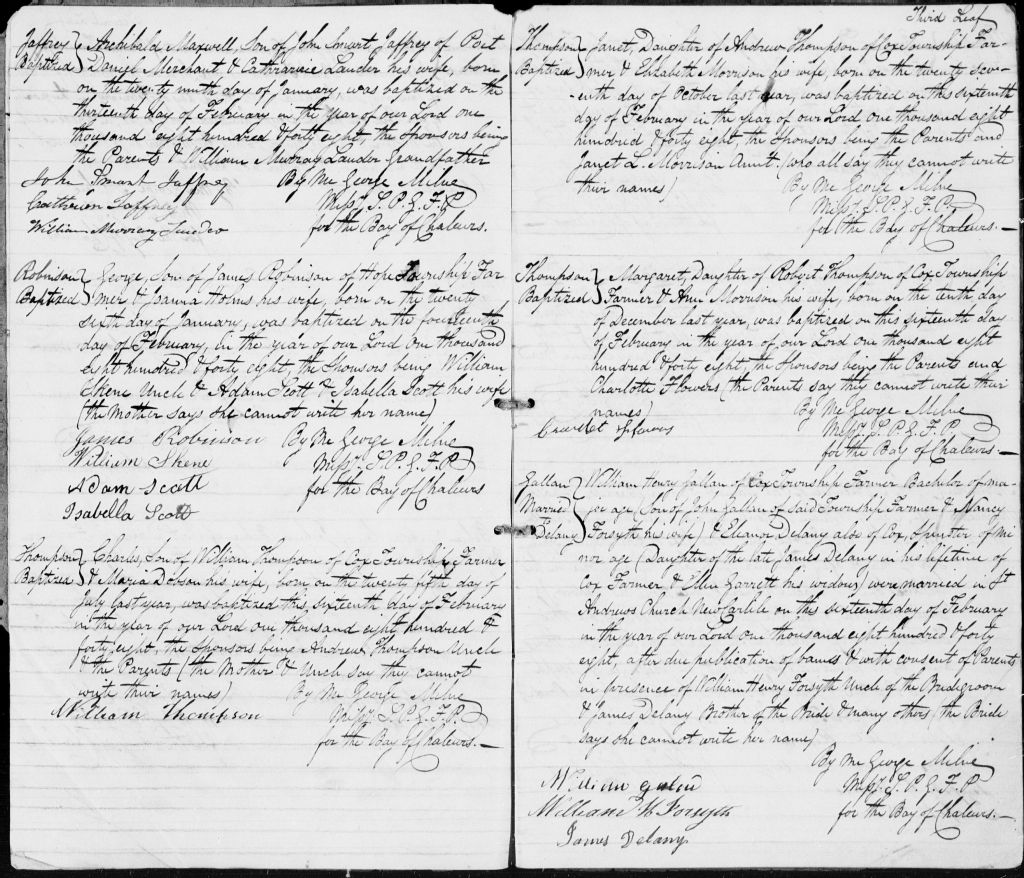 Jaffrey } Archibald Maxwell, Son of John Smart Jaffrey of Port
Baptized } Daniel Merchant & Catherine Lauder his wife, born
on the twenty ninth day of January, was baptized on the
thirteenth day of February in the year of our Lord one
thousand eight hundred & forty eight, the Sponsors being
the Parents & William Murray Lauder Grandfather
John Smart Jaffrey By Me George Milne
Catherien Jaffrey Missy. S. P. G. F. P
William Murray for the Bay of Chaleurs.
Robinson } George, Son of James Robinson of Hope Township Far
Baptized } mer & Joanna Holms his wife, born on the twenty
sixth day of January, was baptized on the fourteenth
day of February, in the year of our Lord one thousand
eight hundred & forty eight, the Sponsors being William
Skene Uncle & Adam Scott & Isabella Scott his wife
(the Mother says she cannot write her name)
James Robinson By Me George Milne
William Skene Missy. S. P. G. F. P
Adam Scott for the Bay of Chaleurs
Isabella Scott
Thompson } Charles, Son of William Thompson of Cox Township, Farmer
Baptized } & Maria Dobson his wife, born on the twenty fifth day of
July last year, was baptized this, sixteenth day of February
in the year of our Lord one thousand eight hundred &
forty eight, the Sponsors being Andrew Thompson Uncle
& the Parents (the Mother & Uncle say they cannot
write their names) By Me George Milne
William Thompson Missy. S. P. G. F. P.
for the Bay of Chaleurs.—
Third Leaf
Thompson } Janet, Daughter of Andrew Thompson of Cox Township Far-
Baptized } mer & Elizabeth Morrison his wife, born on the twenty sev-
-enth day of October last year, was baptized on this sixteenth
day of February in the year of our Lord one thousand eight
hundred & forty eight, the Sponsors being the Parents and
Janet L. Morrison Aunt. (who all say they cannot write
their names) By Me George Milne
Missy. S. P. G. F. P.
for the Bay of Chaleurs.—
Thompson } Margaret, Daughter of Robert Thompson of Cox Township
Baptized } Farmer & Ann Morrison his wife, born on the tenth day
of December last year, was baptized on this sixteenth day
of February in the year of our Lord one thousand eight
hundred & forty eight, the Sponsors being the Parents and
Charlotte Flowers (the Parents say they cannot write their
names) By Me George Milne
Missy. S. P. G. F. P
for the Bay of Chaleurs—
Gallan } William Henry Gallan of Cox Township Farmer Bachelor of ma-
Married } jor age (Son of John Gallan of said Township Farmer & Nancy
Delany } Forsyth his wife) & Eleanor Delany also of Cox, Spinster of mi
nor age (Daughter of the late James Delany in his lifetime of
Cox Farmer & Ellen Garrett his widow) were married in St
Andrews Church New Carlile on this sixteenth day of February
in the year of our Lord one thousand eight hundred & forty
eight, after due publication of banns & with consent of Parents
in presence of William Henry Forsyth Uncle of the Bridegroom
& James Delany Brother of the Bride & many others (the Bride
says she cannot write her name)
By Me George Milne
William Missy. S. P. G. F. P
William H Forsyth for the Bay of Chaleurs.—
James Delany